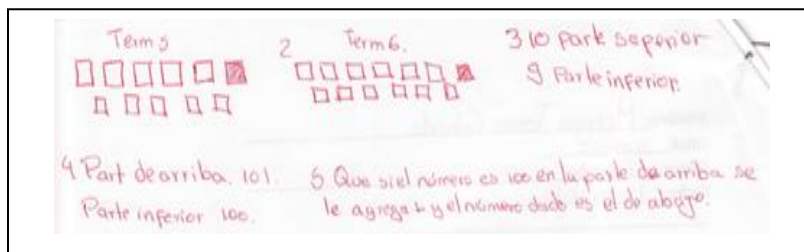 Term 5
2 Term 6.
3 10 park seperior
9 Parte inferior.
4 Part de arriba. 101.
Parte inferior 100.
5 Que si el número es 100 en la parte de arriba se
le agrega + y el número dado es el de abajo.